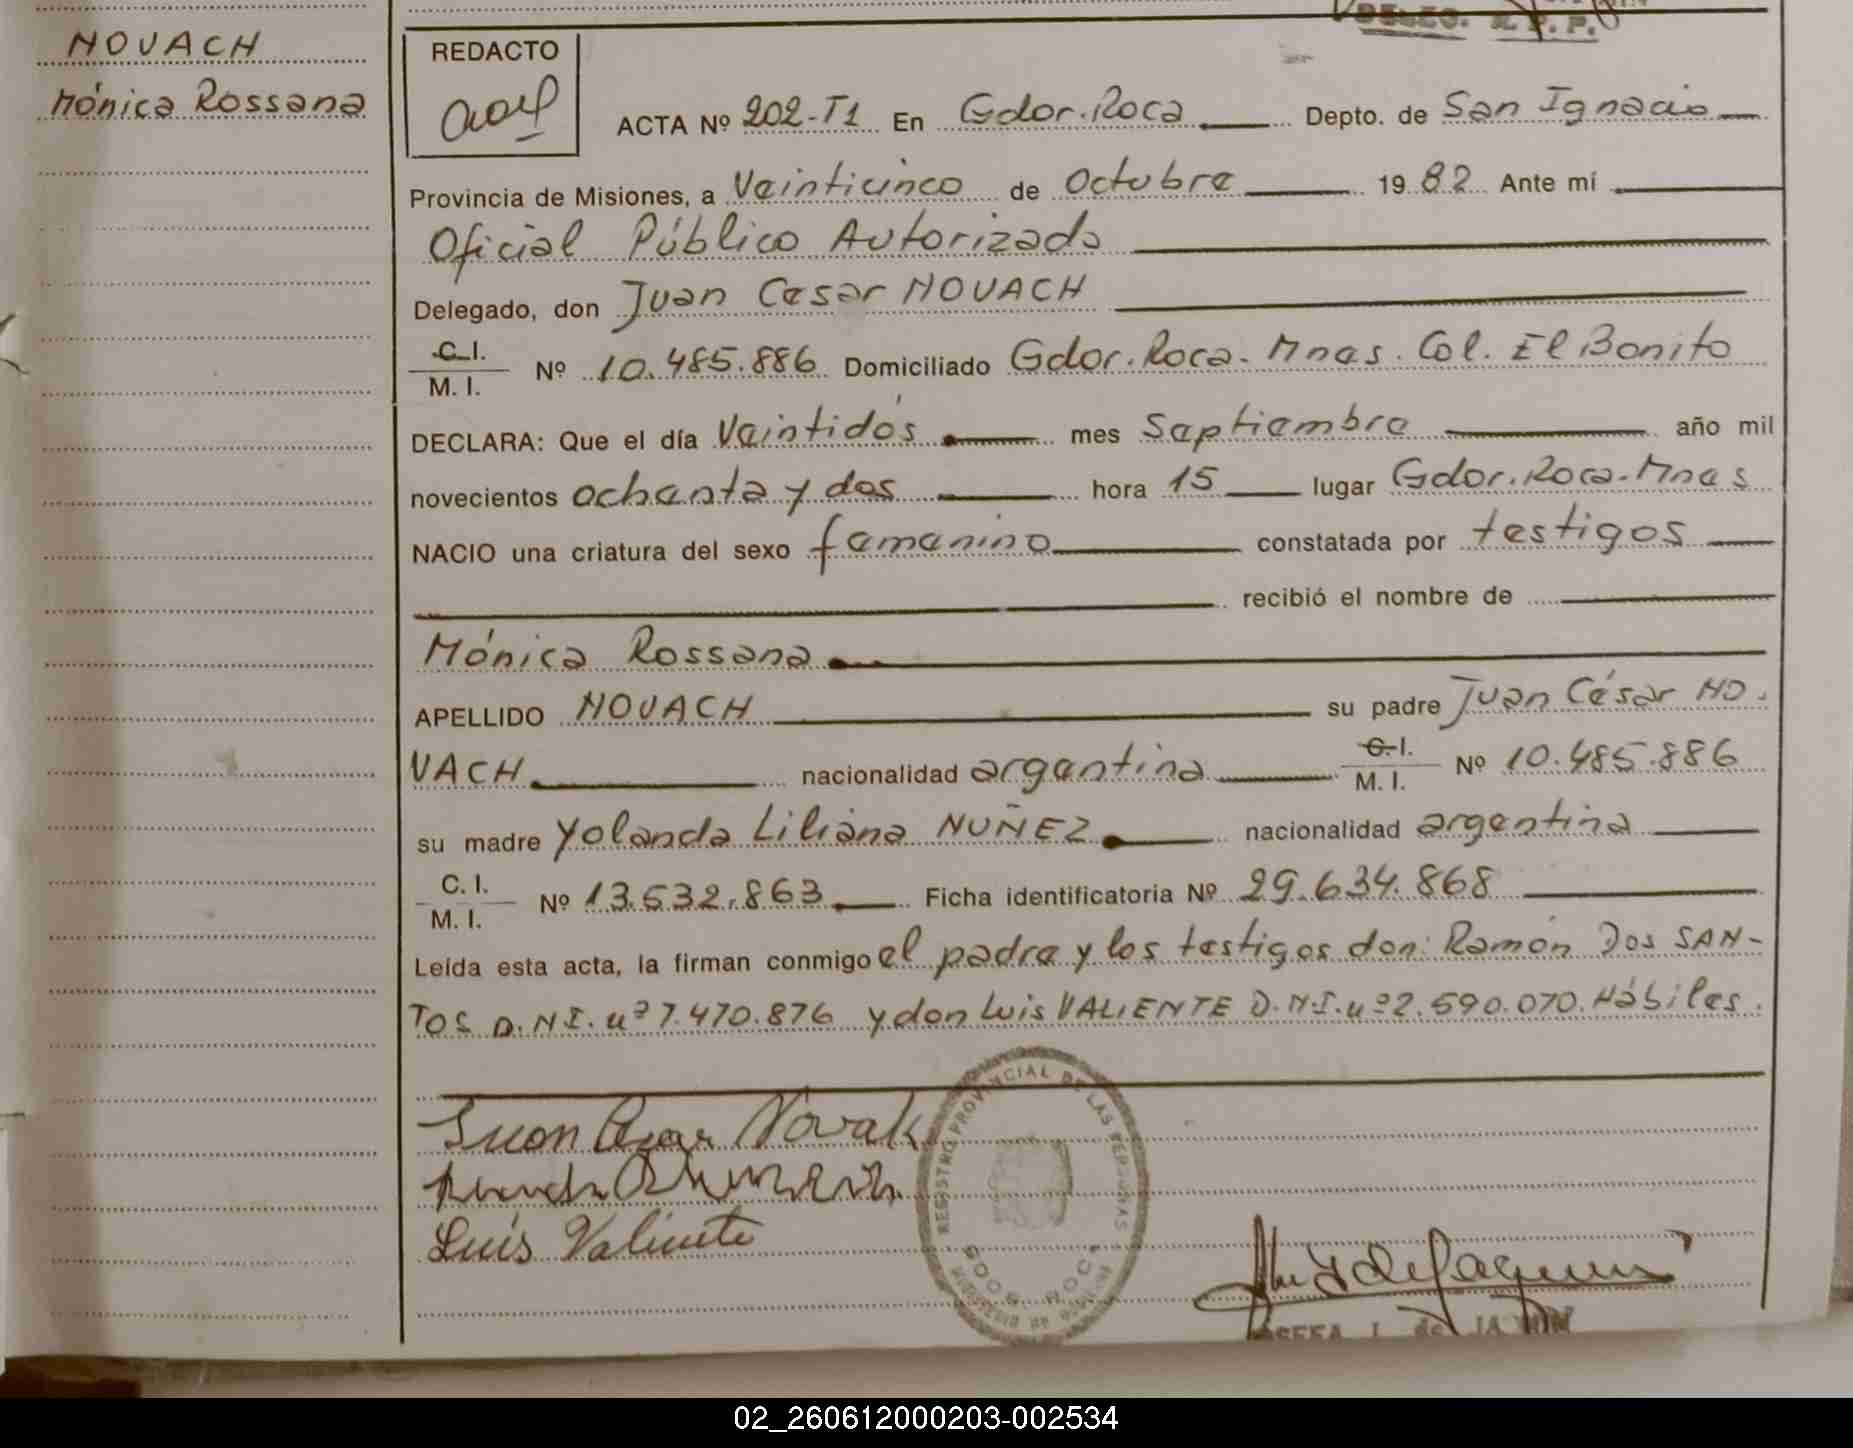 NOVACH
Mónica Rossana
REDACTO
ACTA Nº 202-T1 En Gdor. Roca Depto. de San Ignacio
Provincia de Misiones, a Veinticinco de Octubre 1982 Ante mí
Oficial Público Autorizado
Delegado, don Juan Cesar NOVACH
C.I.
M. I. Nº 10.485.886 Domiciliado Gdor. Roca. Mnes. Col. El Bonito
DECLARA: Que el día Veintidós mes Septiembre año mil
novecientos ochenta y dos hora 15 lugar Gdor. Roca. Mnes
NACIO una criatura del sexo femenino constatada por testigos
recibió el nombre de
Mónica Rossana
APELLIDO NOVACH su padre Juan César NO.
VACH nacionalidad argentina C.I. M. I. Nº 10.485.886
su madre Yolanda Liliana NUÑEZ nacionalidad argentina
C. I.
M. I. Nº 13.532.863 Ficha identificatoria Nº 29.634.868
Leída esta acta, la firman conmigo el padre y los testigos don: Ramón Dos SAN-
TOS D.N.I. nº 7.470.876 y don Luis VALIENTE D.N.I. nº 2.590.070. Hábiles.
Juan Cesar Novak
Luis Valiente
REGISTRO PROVINCIAL DE LAS PERSONAS
GDOR. ROCA
02_260612000203-002534